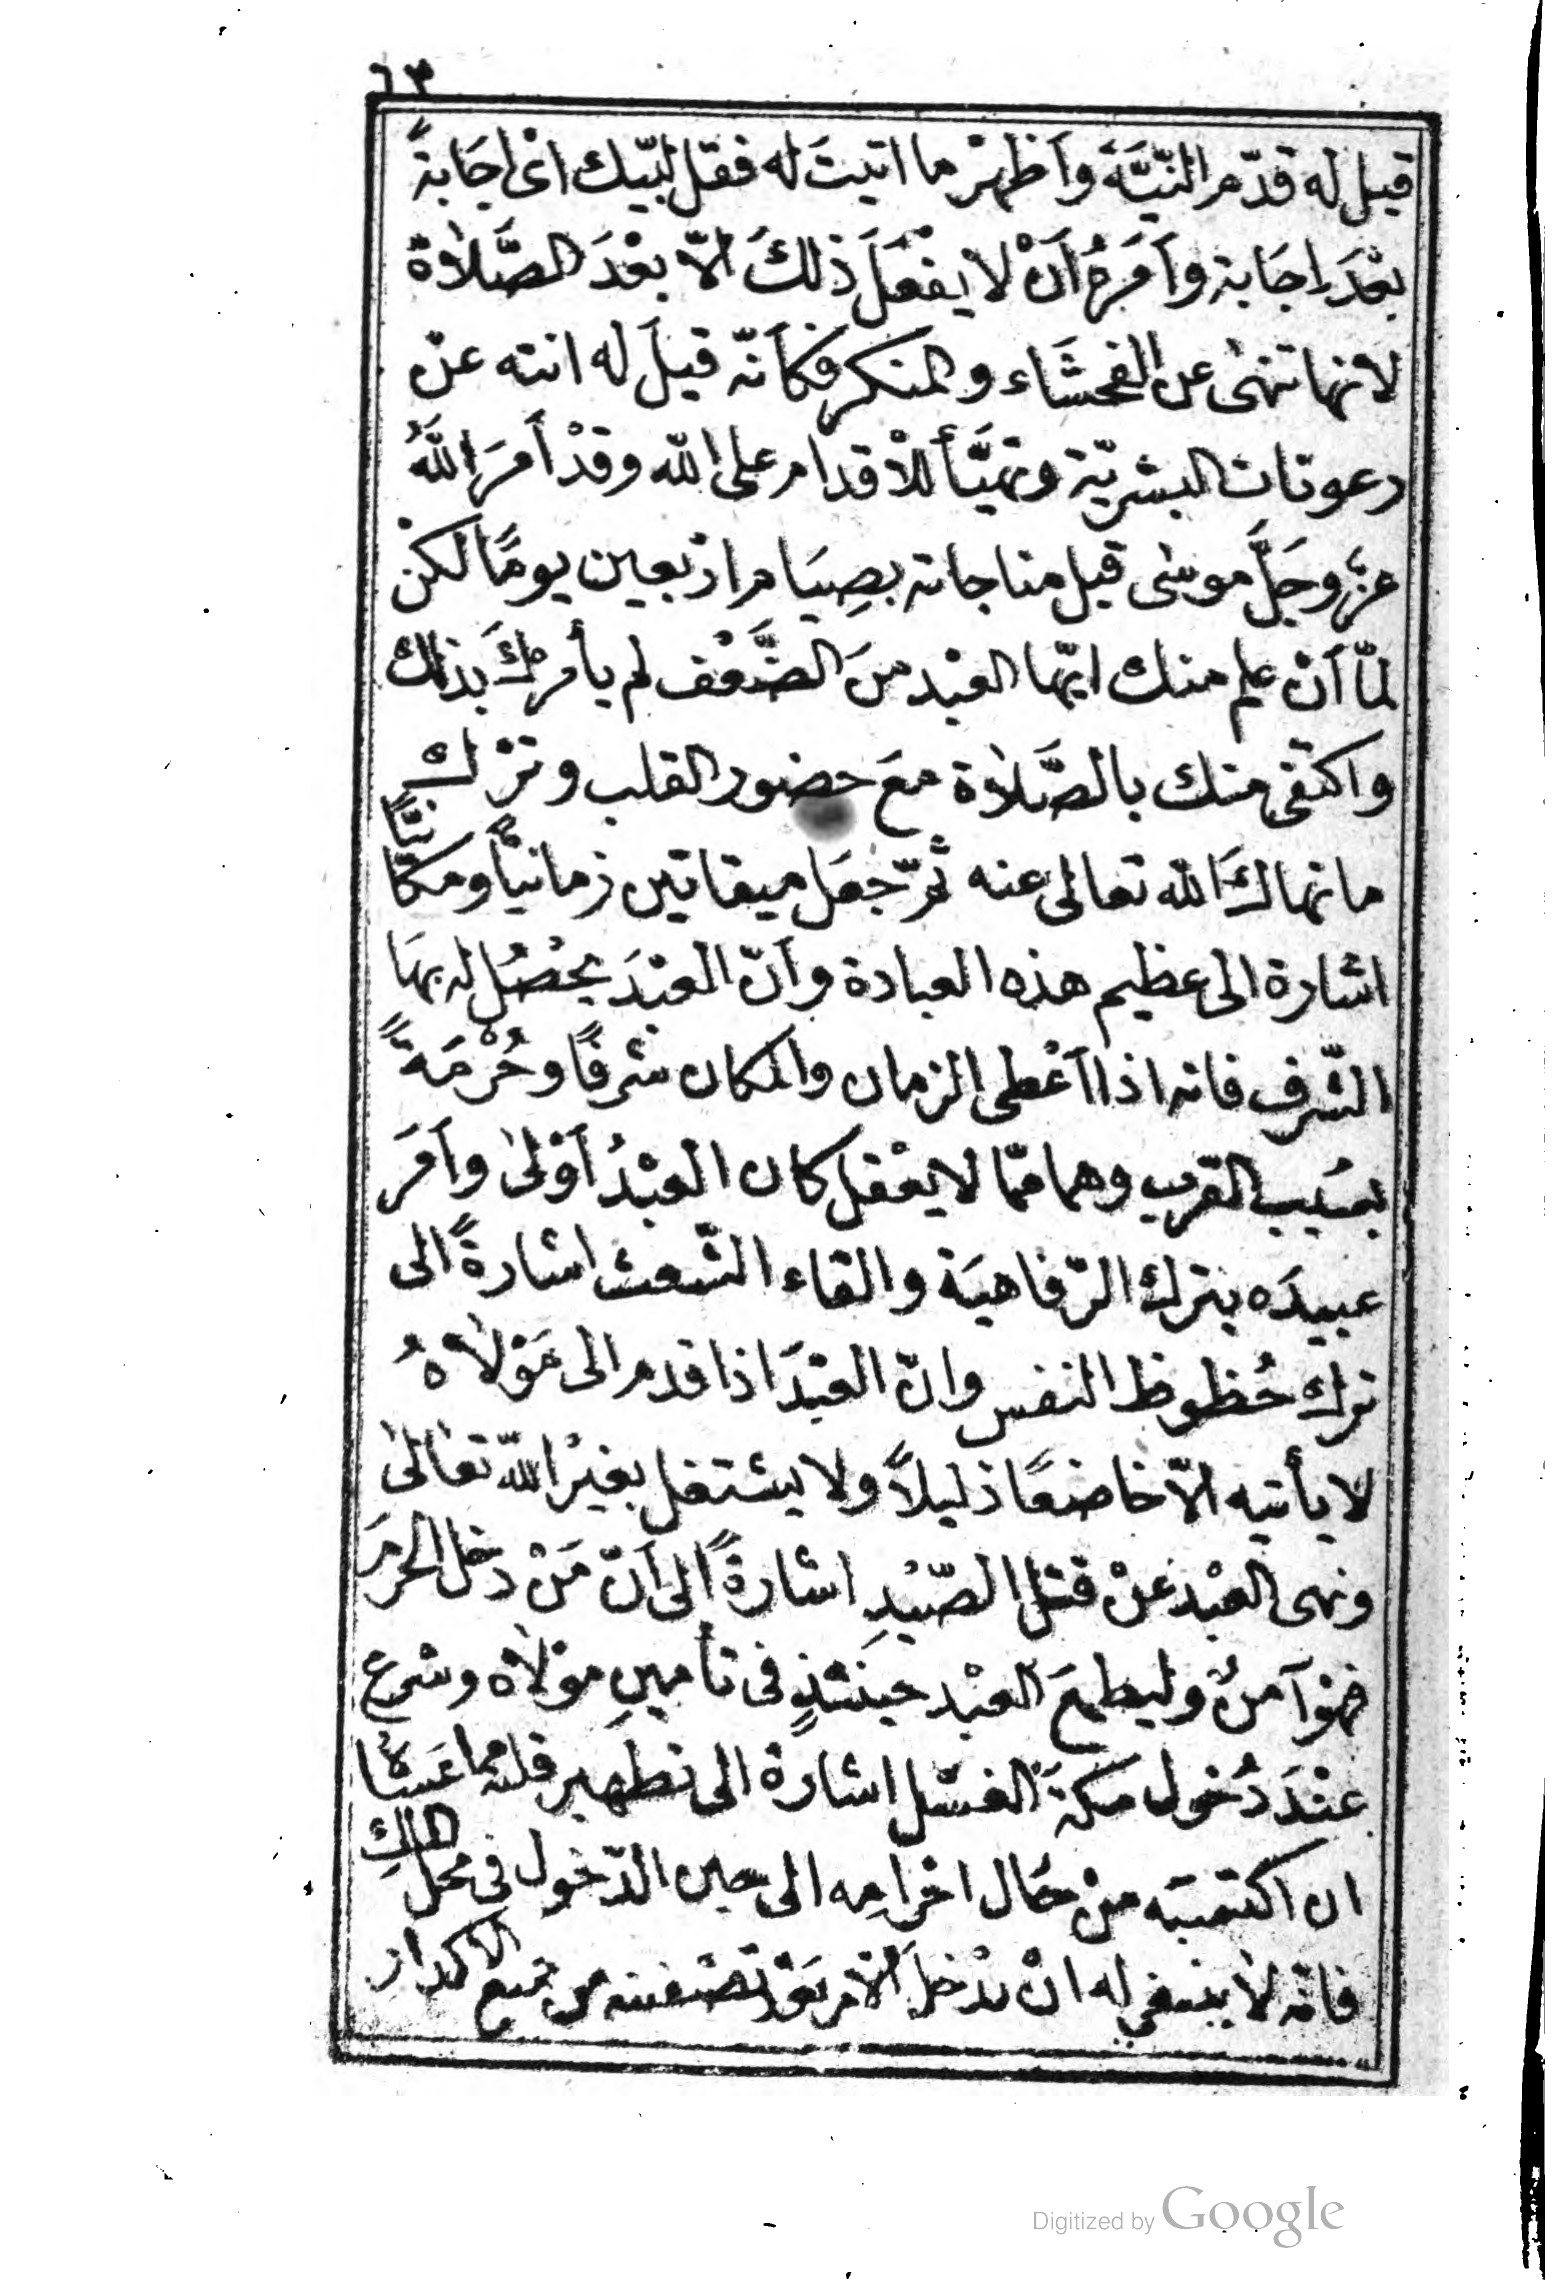 ٦٣
قيل له قدّم النّيَّةَ وأظهرْ ما اتيتَ له فقل لبّيك اىْ اِجَابةً
بعْدَ اِجَابة وأمَرهُ أنْ لا يفْعَلَ ذلكَ الّا بعْدَ الصَّلاٰة
لانها تنهىٰ عن الفحشَاء والمنكر فكأنّه قيلَ له انته عنْ
رعونات البشريّة وتهيَّأ للأقدام على الله وقدْ أمرَ اللهُ
عزّ وجَلَّ موسٰى قبل مناجاته بصِيَام اربعين يومًا لكنْ
لمّا أنْ علم منك ايّها العبْد منَ الضَّعْف لم يأمرْكَ بذلك
واكتفى منك بالصَّلاٰة معَ حضور القلب وترْك
ما نهاكَ الله تعالى عنه ثمّ جعَل ميقاتين زمانيًّا ومكانيًّا
اشارة الى عظيم هذه العبادة وأنّ العبْدَ يحْصُل له بهَا
الشّرف فانه اذا أعْطى الزمان والمكان شرفًا وحُرْمَةً
بسَبب القرب وهما ممّا لا يعْقل كان العبْدُ أوْلىٰ وأمَر
عبيدَه بترك الرّفاهيَة والقاء الشّعث اشارةً الى
ترك حُظوظ النفس وانّ العبْدَ اذا قدم الى مَوْلاٰهُ
لا يأتيه الّا خاضعًا ذليلاً ولا يشتغل بغيْر الله تعَالىٰ
ونهى العبْد عنْ قتل الصّيْدِ اشارةً الى أنّ مَنْ دخل الحرمَ
فهوْ آمنٌ وليطمعَ العبْد حينئذٍ فى تأمينِ موْلاٰه وشرع
عنْدَ دُخول مكةَ الغسْل اشارة الى تطهير قلبه مما عَسَاهُ
ان اكتسبَه منْ حَال احْرامِه الى حين الدّخول فى محلّ الملكِ
فانّه لاٰ ينبغى له انْ يدْخلَ الّا من بعْد تصْفيته من جميع الاكدار
Digitized by Google